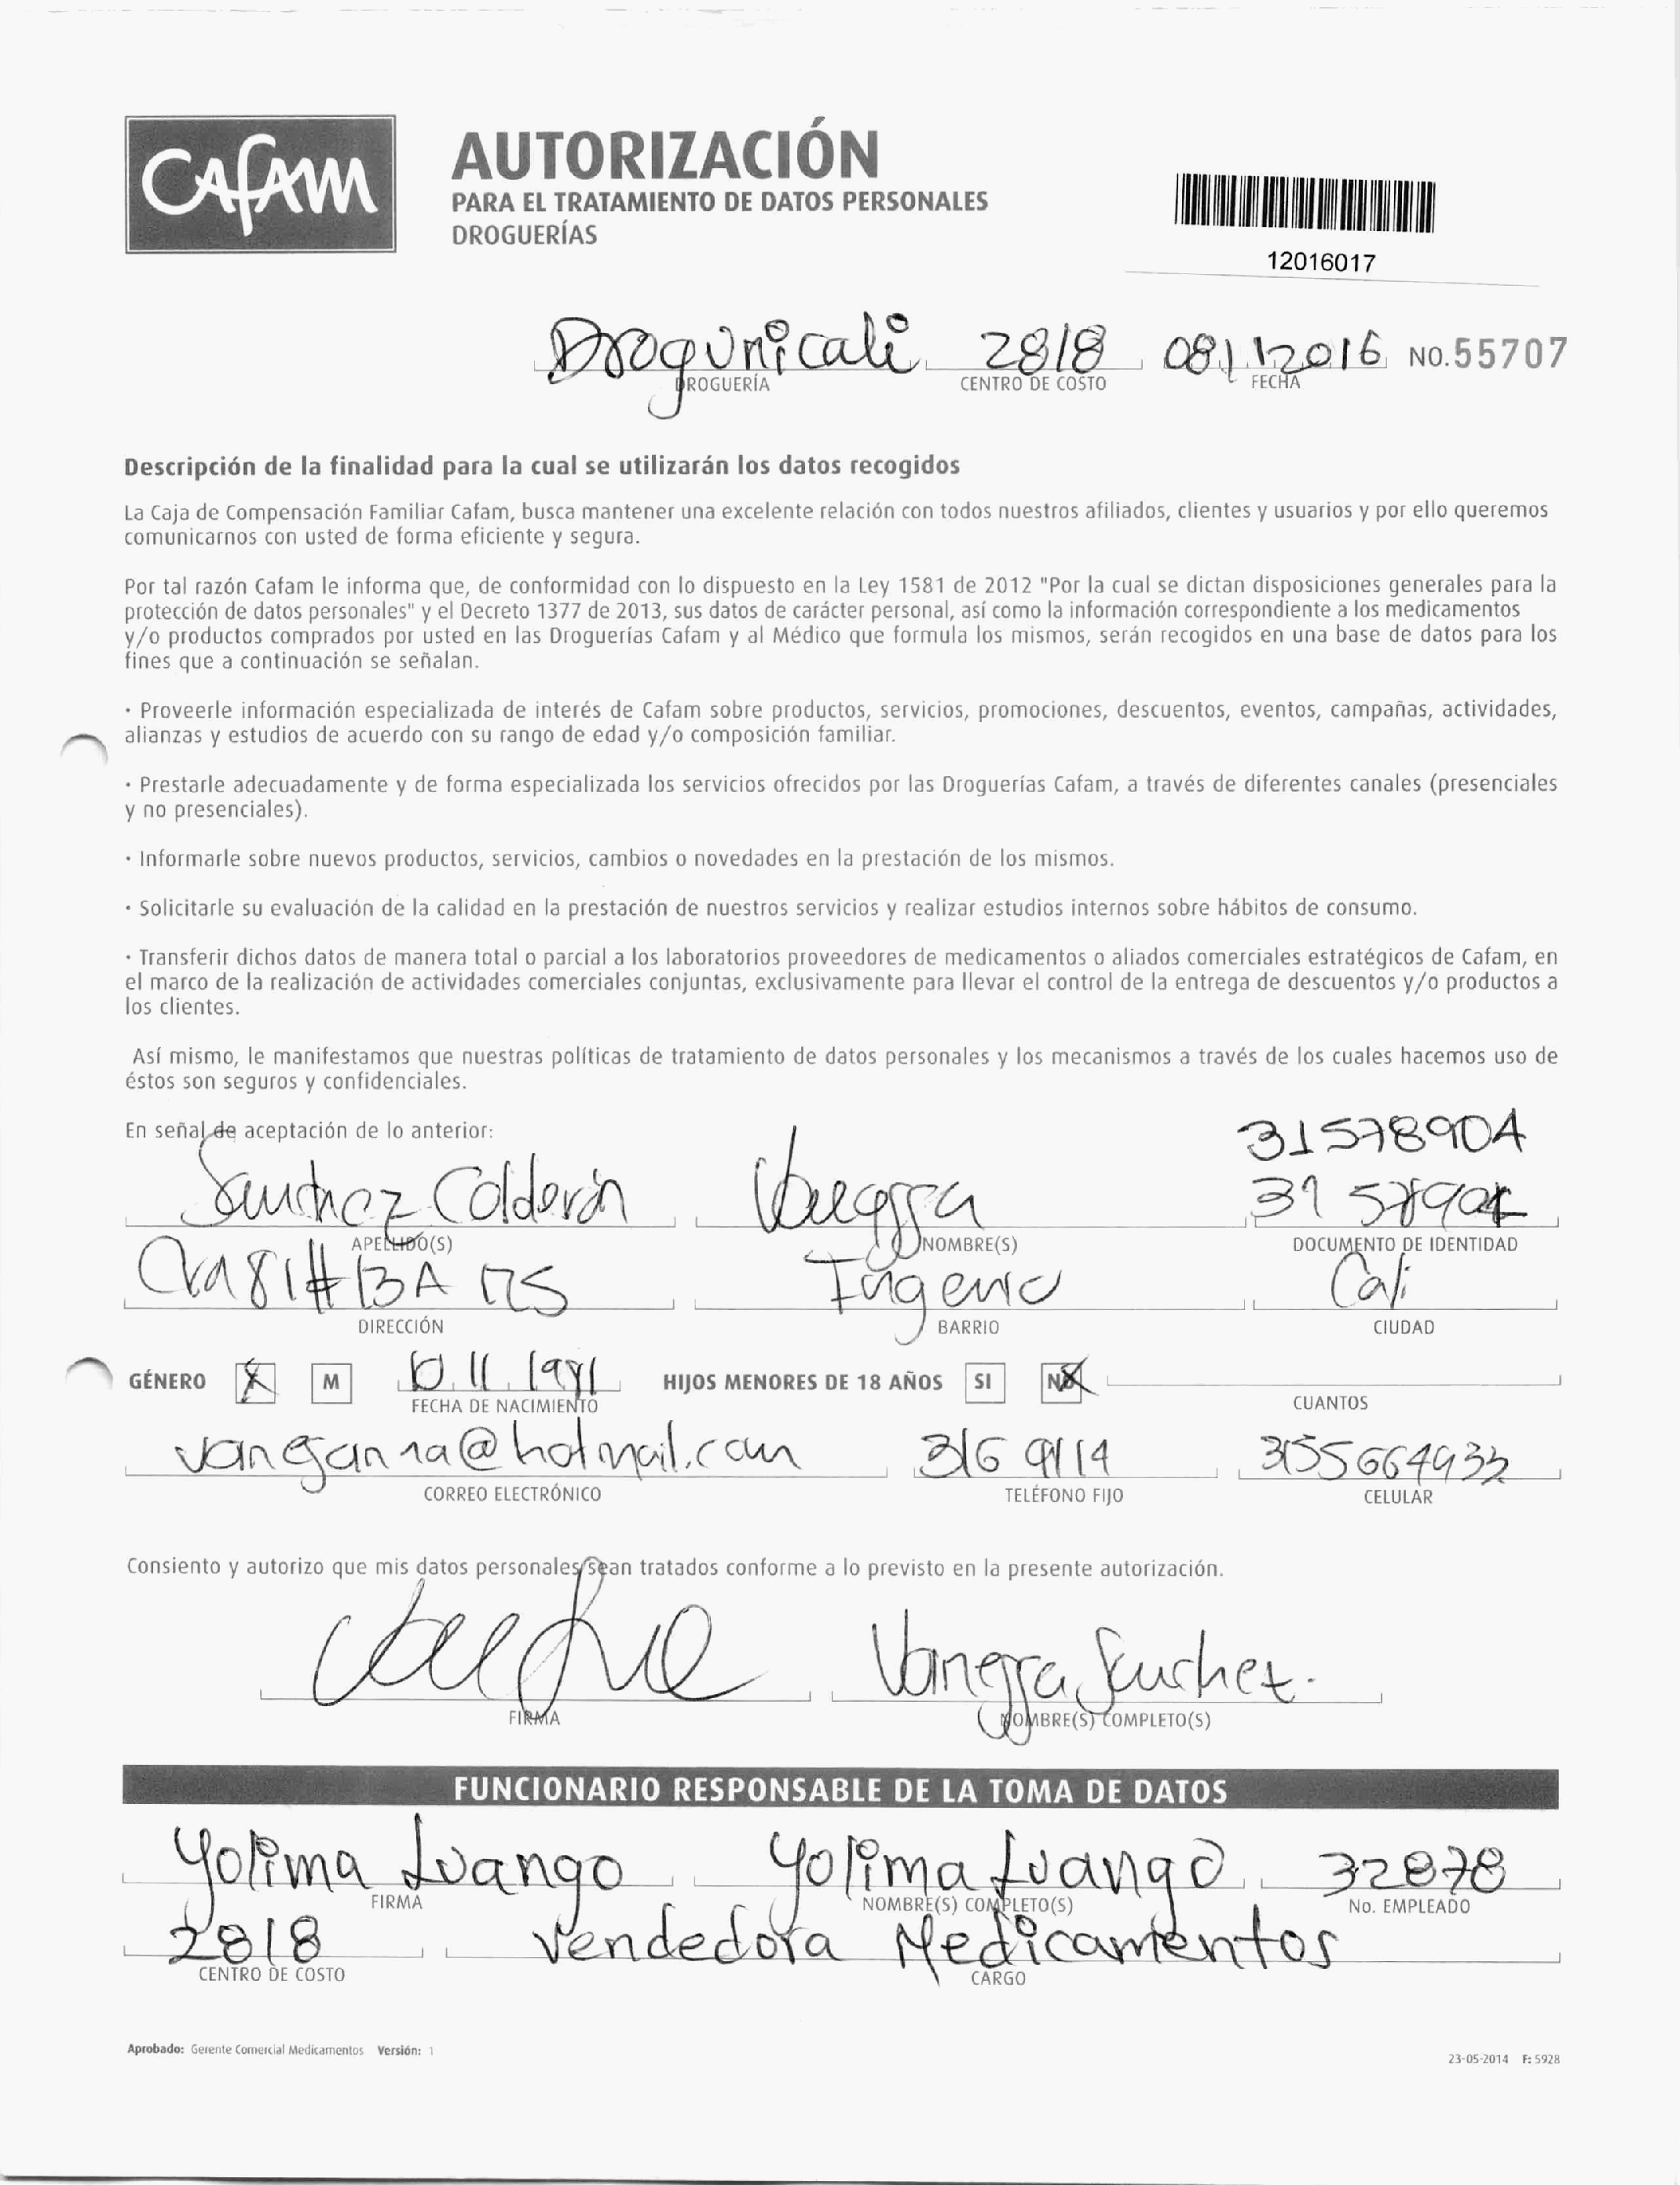 CAFAM
AUTORIZACIÓN
PARA EL TRATAMIENTO DE DATOS PERSONALES
DROGUERÍAS
12016017
Drogunicali 2818 08 11 2016 NO.55707
DROGUERÍA CENTRO DE COSTO FECHA
Descripción de la finalidad para la cual se utilizarán los datos recogidos
La Caja de Compensación Familiar Cafam, busca mantener una excelente relación con todos nuestros afiliados, clientes y usuarios y por ello queremos
comunicarnos con usted de forma eficiente y segura.
Por tal razón Cafam le informa que, de conformidad con lo dispuesto en la Ley 1581 de 2012 "Por la cual se dictan disposiciones generales para la
protección de datos personales" y el Decreto 1377 de 2013, sus datos de carácter personal, así como la información correspondiente a los medicamentos
y/o productos comprados por usted en las Droguerías Cafam y al Médico que formula los mismos, serán recogidos en una base de datos para los
fines que a continuación se señalan.
· Proveerle información especializada de interés de Cafam sobre productos, servicios, promociones, descuentos, eventos, campañas, actividades,
alianzas y estudios de acuerdo con su rango de edad y/o composición familiar.
· Prestarle adecuadamente y de forma especializada los servicios ofrecidos por las Droguerías Cafam, a través de diferentes canales (presenciales
y no presenciales).
· Informarle sobre nuevos productos, servicios, cambios o novedades en la prestación de los mismos.
· Solicitarle su evaluación de la calidad en la prestación de nuestros servicios y realizar estudios internos sobre hábitos de consumo.
· Transferir dichos datos de manera total o parcial a los laboratorios proveedores de medicamentos o aliados comerciales estratégicos de Cafam, en
el marco de la realización de actividades comerciales conjuntas, exclusivamente para llevar el control de la entrega de descuentos y/o productos a
los clientes.
Así mismo, le manifestamos que nuestras políticas de tratamiento de datos personales y los mecanismos a través de los cuales hacemos uso de
éstos son seguros y confidenciales.
En señal de aceptación de lo anterior:
31578904
Sanchez Calderón Vanessa 31578904
APELLIDO(S) NOMBRE(S) DOCUMENTO DE IDENTIDAD
Cra 81 # 13A 175 Ingenio Cali
DIRECCIÓN BARRIO CIUDAD
GÉNERO X M 10 11 1981 HIJOS MENORES DE 18 AÑOS SI NO
FECHA DE NACIMIENTO CUANTOS
@hotmail.com 316 9114 3155664933
CORREO ELECTRÓNICO TELÉFONO FIJO CELULAR
Consiento y autorizo que mis datos personales sean tratados conforme a lo previsto en la presente autorización.
Vanessa Sanchez.
FIRMA NOMBRE(S) COMPLETO(S)
FUNCIONARIO RESPONSABLE DE LA TOMA DE DATOS
Yolima Luango Yolima Luango 32878
FIRMA NOMBRE(S) COMPLETO(S) No. EMPLEADO
2818 Vendedora Medicamentos
CENTRO DE COSTO CARGO
Aprobado: Gerente Comercial Medicamentos Versión: 1
23-05-2014 F: 5928